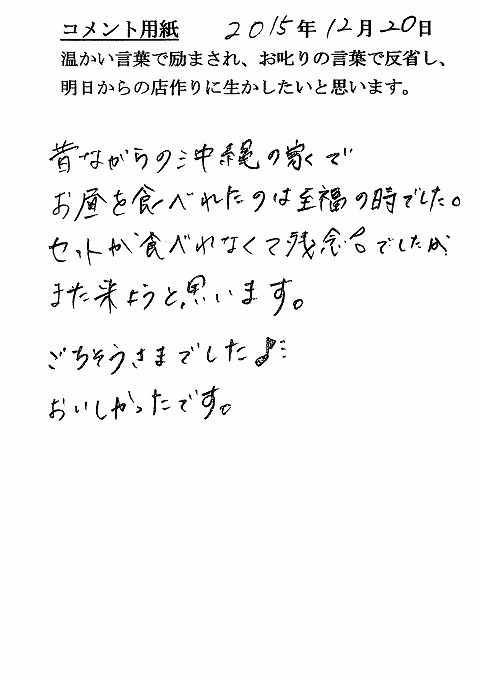 コメント用紙 2015年12月20日
温かい言葉で励まされ、お叱りの言葉で反省し、
明日からの店作りに生かしたいと思います。
昔ながらの沖縄の家で
お昼を食べれたのは至福の時でした。
セットが食べれなくて残念でしたが
また来ようと思います。
ごちそうさまでした♪
おいしかったです。